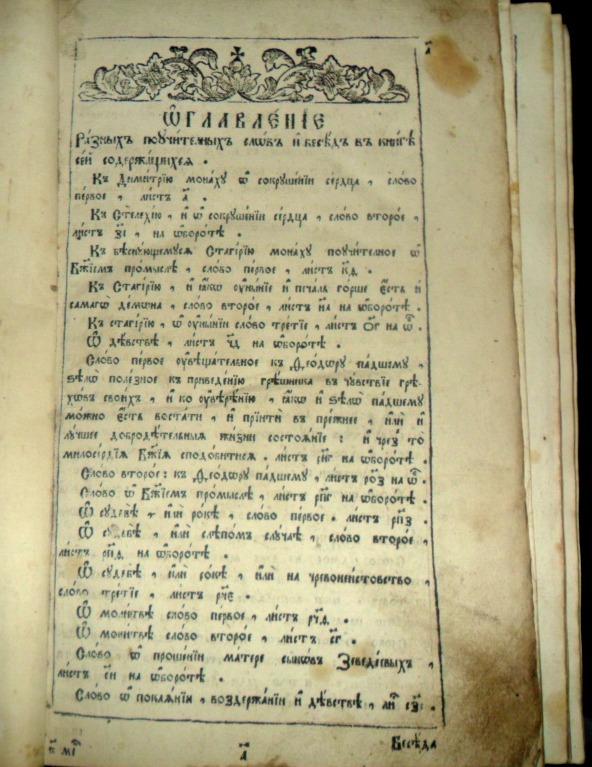 ѡ҃
Ѡ҆ГЛАВЛЕ́НЇЕ
Ра́зныхъ поꙋчи́тельныхъ сло́въ и҆ бесѣ́дъ въ кни́гѣ
се́й содержа́щихсѧ .
Къ Дими́трїю мона́хꙋ ѡ҆ сокрꙋше́нїи се́рдца , сло́во
пе́рвое , ли́стъ а҃ .
Къ Стеле́хїю , и҆ ѡ҆ сокрꙋше́нїи се́рдца , сло́во второ́е ,
ли́стъ на ѡ҆боро́тѣ .
Къ бѣснꙋ́ющемꙋсѧ Стаги́рїю мона́хꙋ поꙋчи́тельное ѡ҆
Бж҃їемъ про́мыслѣ , сло́во пе́рвое , ли́стъ к҃д .
Къ Стаги́рїю , и҆ ꙗ҆́кѡ ᲂу҆ны́нїе и҆ печа́ль го́рше є҆́сть и҆
самагѡ̀ де́мѡна , сло́во второ́е , ли́стъ н҃а на ѡ҆боро́тѣ .
Къ стаги́рїю , ѡ҆ ᲂу҆ны́нїи сло́во тре́тїе , ли́стъ о҃г на ѡ҆́ .
Ѡ҆ дѣ́вствѣ , ли́стъ ч҃д на ѡ҆боро́тѣ .
Сло́во пе́рвое ᲂу҆вѣща́тельное къ Ѳео́дѡрꙋ па́дшемꙋ ,
ѕѣлѡ̀ поле́зное къ приведе́нїю грѣ́шника въ чꙋ́вствїе грѣ-
хѡ́въ свои́хъ , и҆ ко ᲂу҆вѣре́нїю , ꙗ҆́кѡ и҆ ѕѣлѡ̀ па́дшемꙋ
мо́жно є҆́сть воста́ти , и҆ прїитѝ въ пре́жнее , и҆лѝ и҆
лꙋ́чшее добродѣ́тельныѧ жи́зни состоѧ́нїе : и҆ чрез̾ то̀
милосе́рдїѧ Бж҃їѧ сподо́битисѧ . ли́стъ рн҃г на ѡ҆боро́тѣ .
Сло́во второ́е : къ Ѳео́дѡрꙋ па́дшемꙋ , ли́стъ ро҃з на ѡ҆́ .
Сло́во ѡ҆ Бж҃їемъ про́мыслѣ , ли́стъ рп҃г на ѡ҆боро́тѣ .
Ѡ҆ сꙋдьбѣ̀ , и҆лѝ ро́кѣ , сло́во пе́рвое . ли́стъ рп҃з .
Ѡ҆ сꙋдьбѣ̀ , и҆лѝ слѣпо́мъ слꙋ́чаѣ , сло́во второ́е ,
ли́стъ на ѡ҆боро́тѣ .
Ѡ҆ сꙋдьбѣ̀ , и҆лѝ ро́кѣ , и҆лѝ на чревонеи́стовство ,
сло́во тре́тїе , ли́стъ рч҃є .
Ѡ҆ моли́твѣ сло́во пе́рвое , ли́стъ рч҃ѳ .
Ѡ҆ моли́твѣ сло́во второ́е , ли́стъ с҃г .
Сло́во ѡ҆ проше́нїи ма́тере сынѡ́въ Зеведе́овыхъ ,
ли́стъ с҃и на ѡ҆боро́тѣ .
Сло́во ѡ҆ покаѧ́нїи , воздержа́нїи и҆ дѣ́вствѣ , ли́
а҃
Бесѣ́да